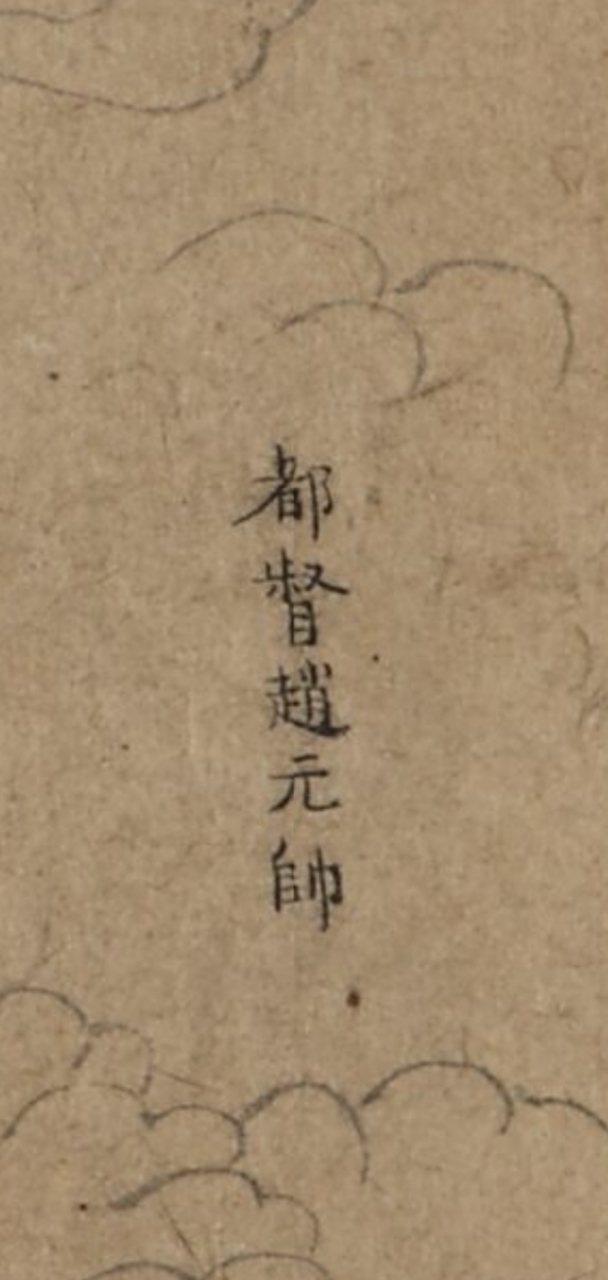 都督趙元帥